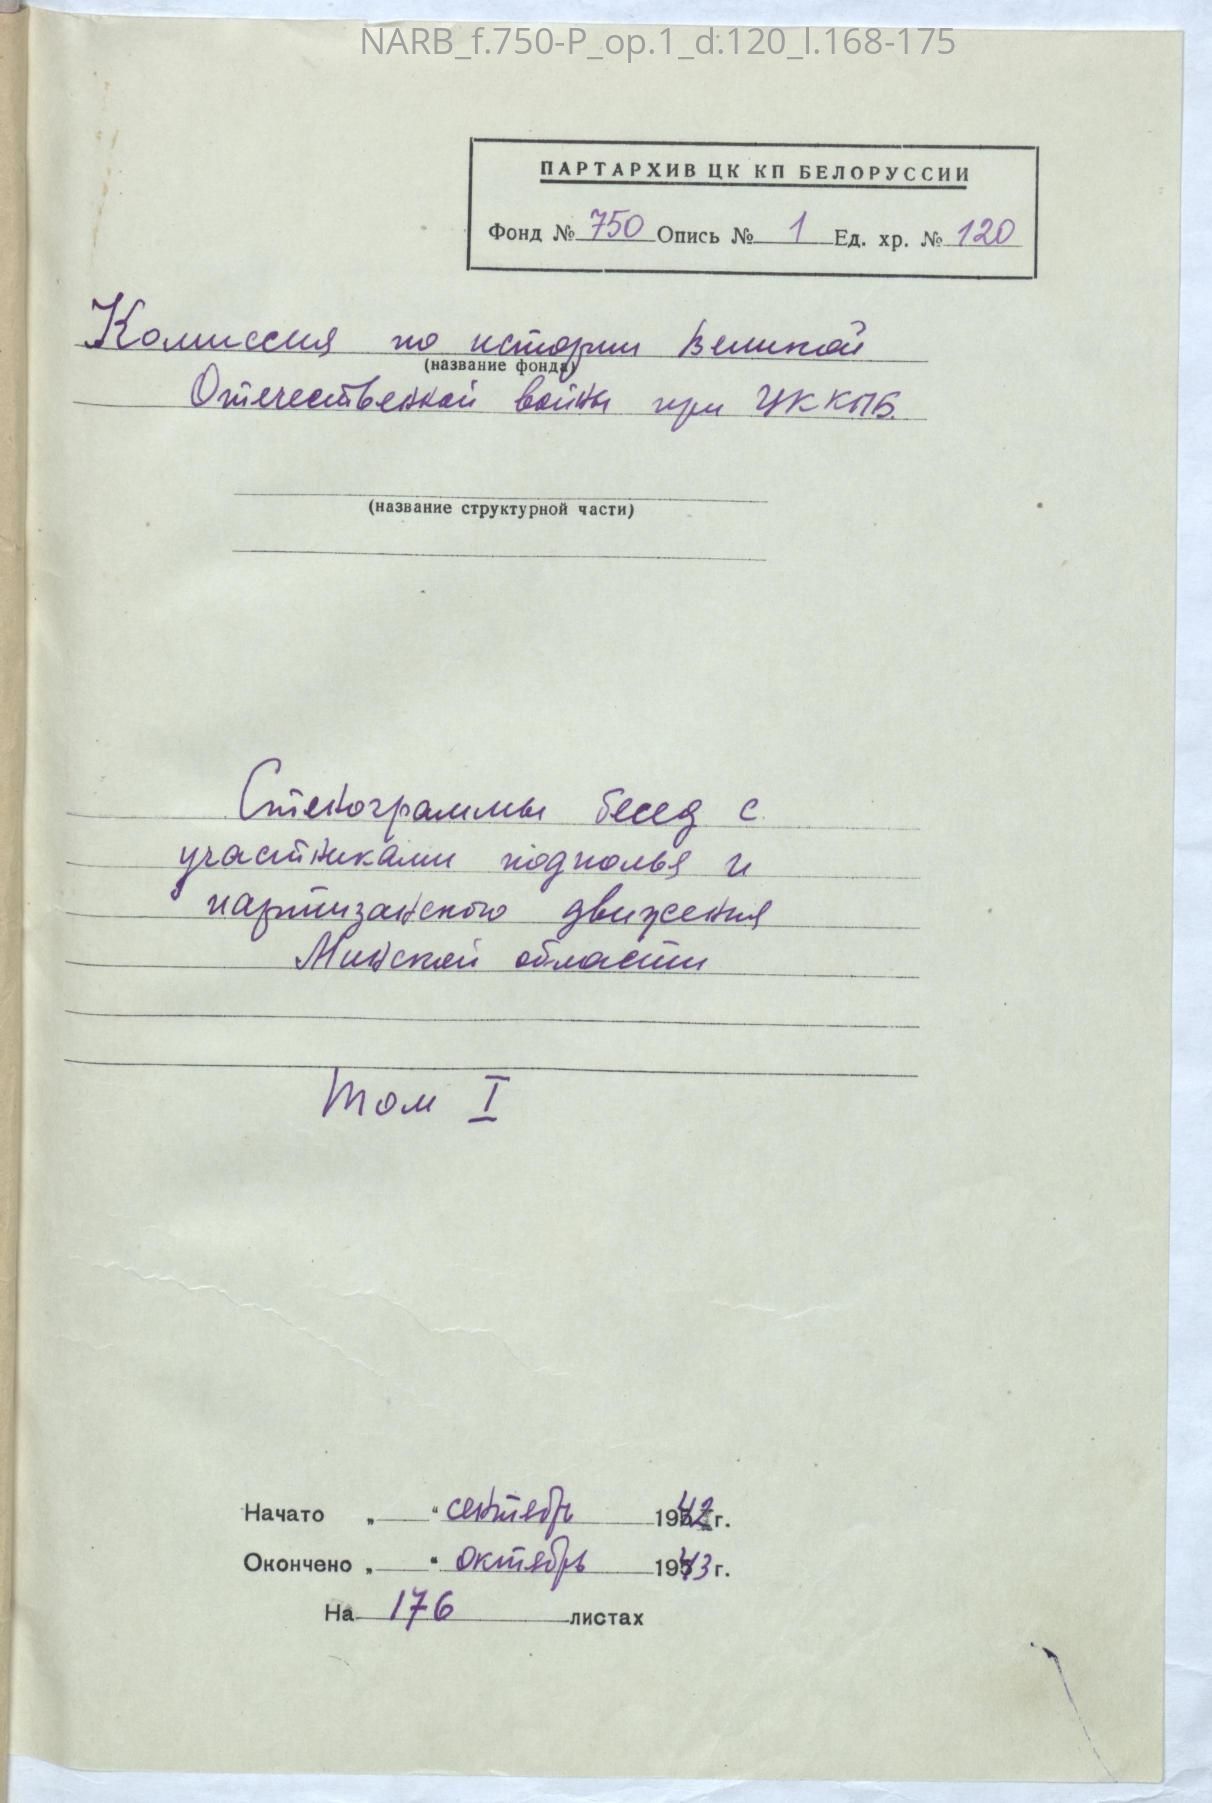 NARB_f.750-P_op.1_d.120_l.168-175
ПАРТАРХИВ ЦК КП БЕЛОРУССИИ
Фонд № 750 Опись № 1 Ед. хр. № 120
Комиссия по истории Великой
(название фонда)
Отечественной войны при ЦК КПБ.
(название структурной части)
Стенограммы бесед с
участниками подполья и
партизанского движения
Минской области
Том I
Начато „ “ сентябрь 1942 г.
Окончено „ “ октябрь 1943 г.
На 176 листах